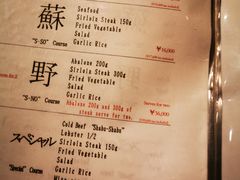 蘇
"S-SO" Course
Seafood
Sirloin Steak 150g
Fried Vegetable
Salad
Garlic Rice
¥16,000
野
"S-NO" Course
Abalone 200g
Sirloin Steak 300g
Fried Vegetable
Salad
Garlic Rice
Abalone 200g and 300g of
steak serve for two.
Serves for two
¥36,000
スペシャル
"Special" Course
Cold Beef "Shabu-Shabu"
Lobster 1/2
Sirloin Steak 150g
Fried Vegetable
Salad
Garlic Rice